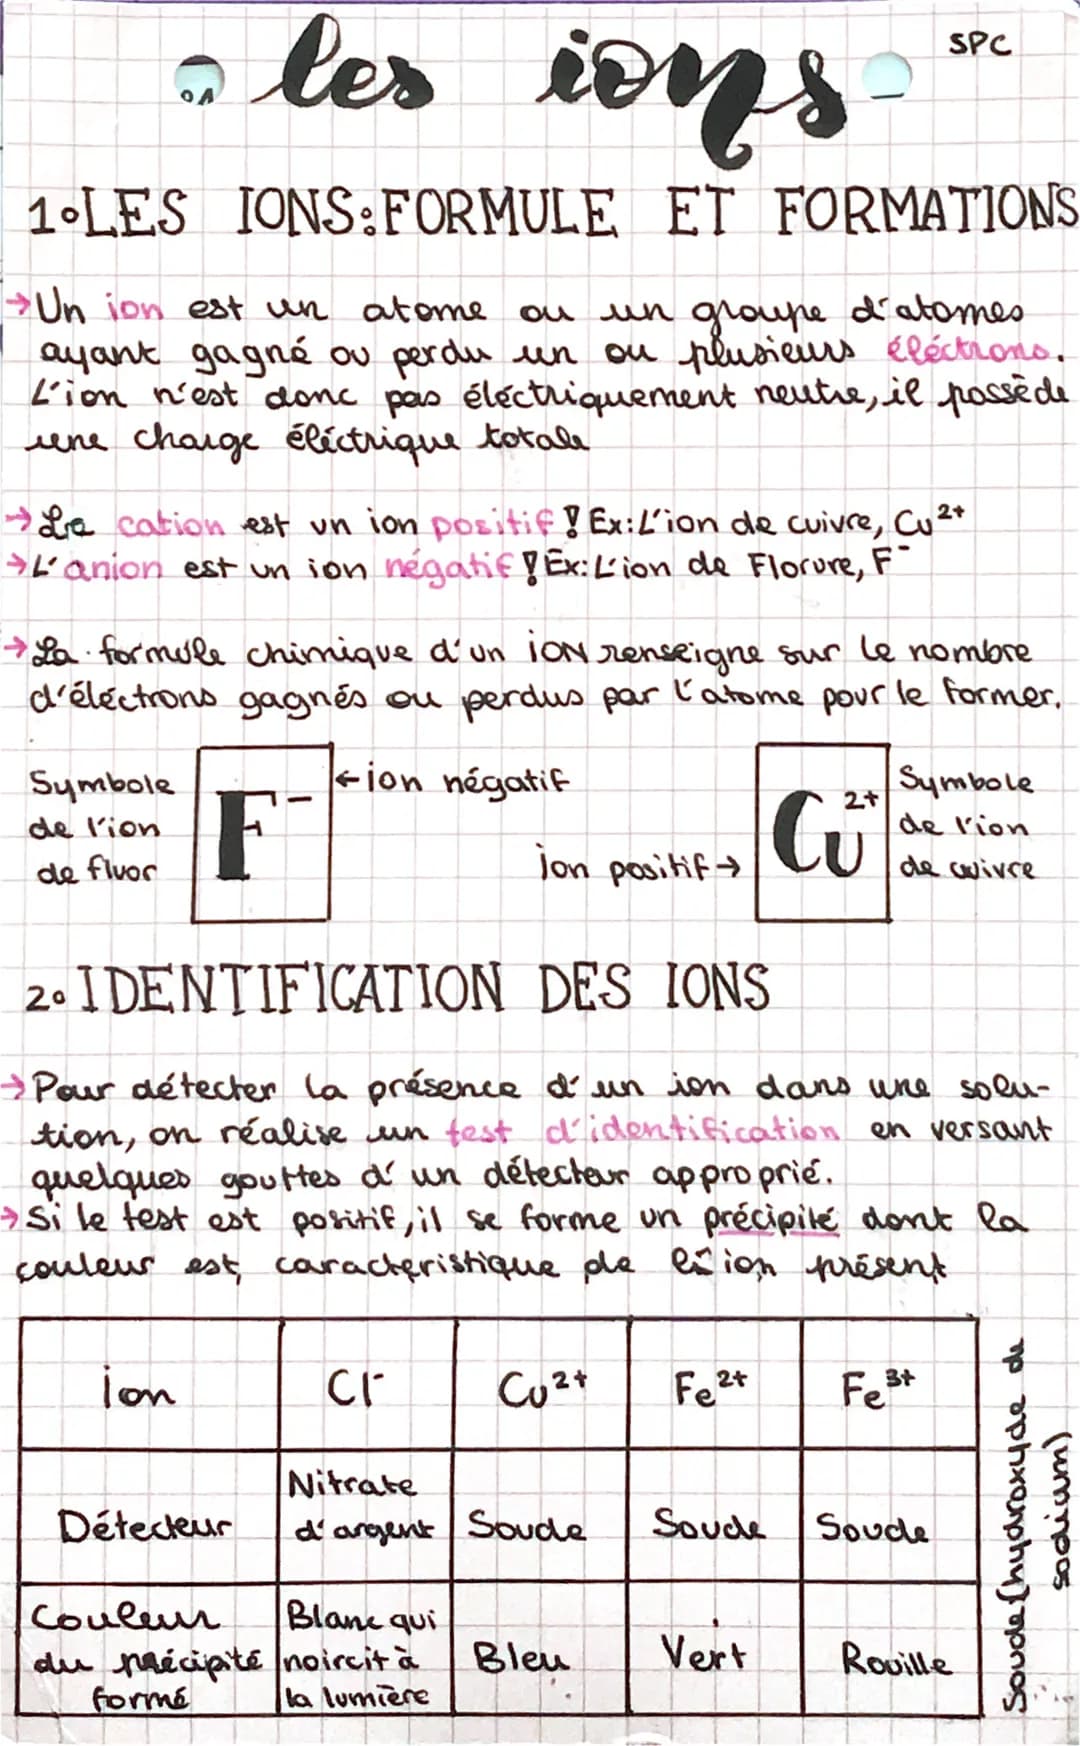 les ions
SPC
1•LES IONS:FORMULE ET FORMATIONS
→Un ion est un atome ou un groupe d'atomes
ayant gagné ou perdu un ou plusieurs éléctrons.
L'ion n'est donc pas éléctriquement neutre, il possède
une charge éléctrique totale
→Le cation est un ion positif! Ex:L'ion de cuivre, Cu²⁺
→L'anion est un ion négatif! Ex:L'ion de Florure, F⁻
→La formule chimique d'un ion renseigne sur le nombre
d'éléctrons gagnés ou perdus par l'atome pour le former.
Symbole
de l'ion
de fluor
F⁻
←ion négatif
ion positif→
Cu²⁺
Symbole
de l'ion
de cuivre
2•IDENTIFICATION DES IONS
→Pour détecter la présence d'un ion dans une solu-
tion, on réalise un test d'identification en versant
quelques gouttes d'un détecteur approprié.
→Si le test est positif, il se forme un précipité dont la
couleur est caractéristique de l'ion présent
ion Cl⁻ Cu²⁺ Fe²⁺ Fe³⁺
Détecteur Nitrate d'argent Soude Soude Soude
Couleur du précipité formé Blanc qui noircit à la lumière Bleu Vert Rouille
Soude (hydroxyde de
sodium)